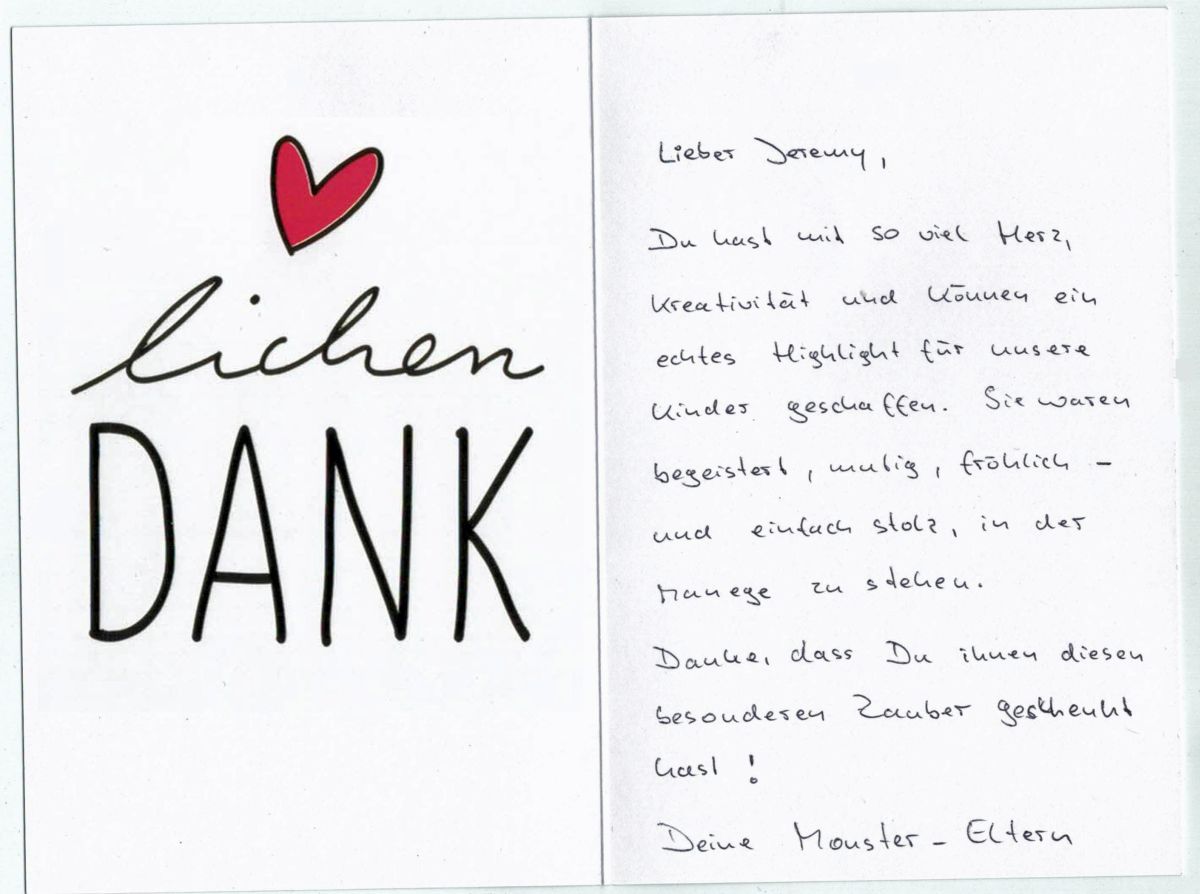 lichen
DANK
Lieber Jeremy,
Du hast mit so viel Herz,
Kreativität und Können ein
echtes Highlight für unsere
Kinder geschaffen. Sie waren
begeistert, mutig, fröhlich –
und einfach stolz, in der
Manege zu stehen.
Danke, dass Du ihnen diesen
besonderen Zauber geschenkt
hast!
Deine Monster-Eltern